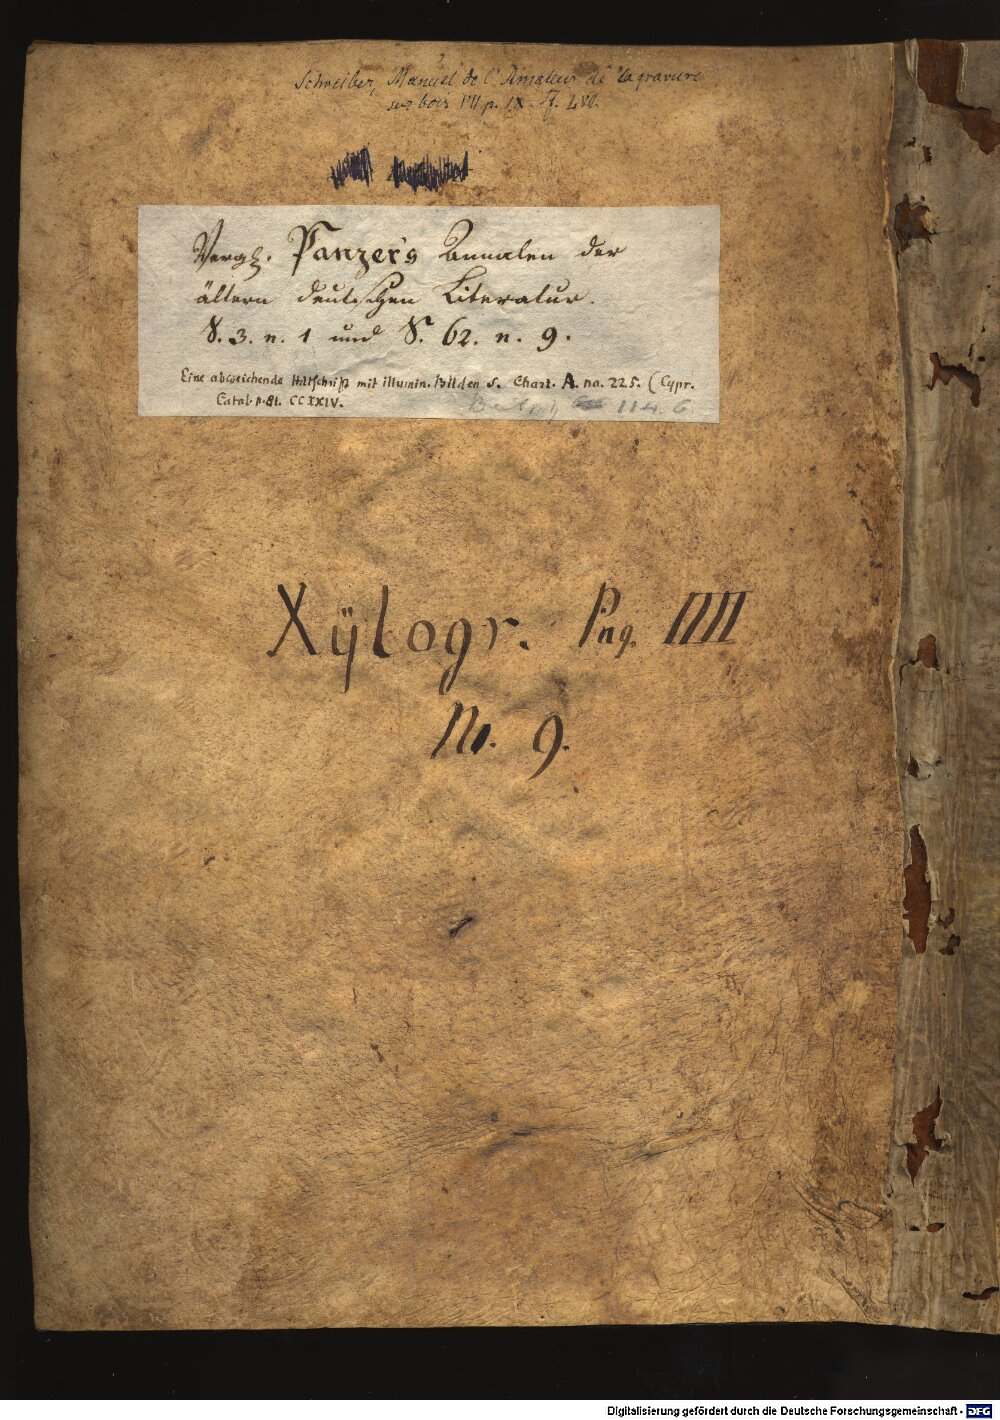 Schreiber, Manuel de l'Amateur de la gravure
sur bois VII p. IX
Vergl. Panzer's Annalen der
ältern deutschen Literatur.
S. 3. n. 1 und S. 62. n. 9.
Eine abweichende Hdtschrift mit illumin. Bilden s. Chart. A. no. 225. (Cypr.
Catal. p. 81. CCXXIV.
114 6
Xÿlogr. Pag. IIII
No. 9.
Digitalisierung gefördert durch die Deutsche Forschungsgemeinschaft - DFG